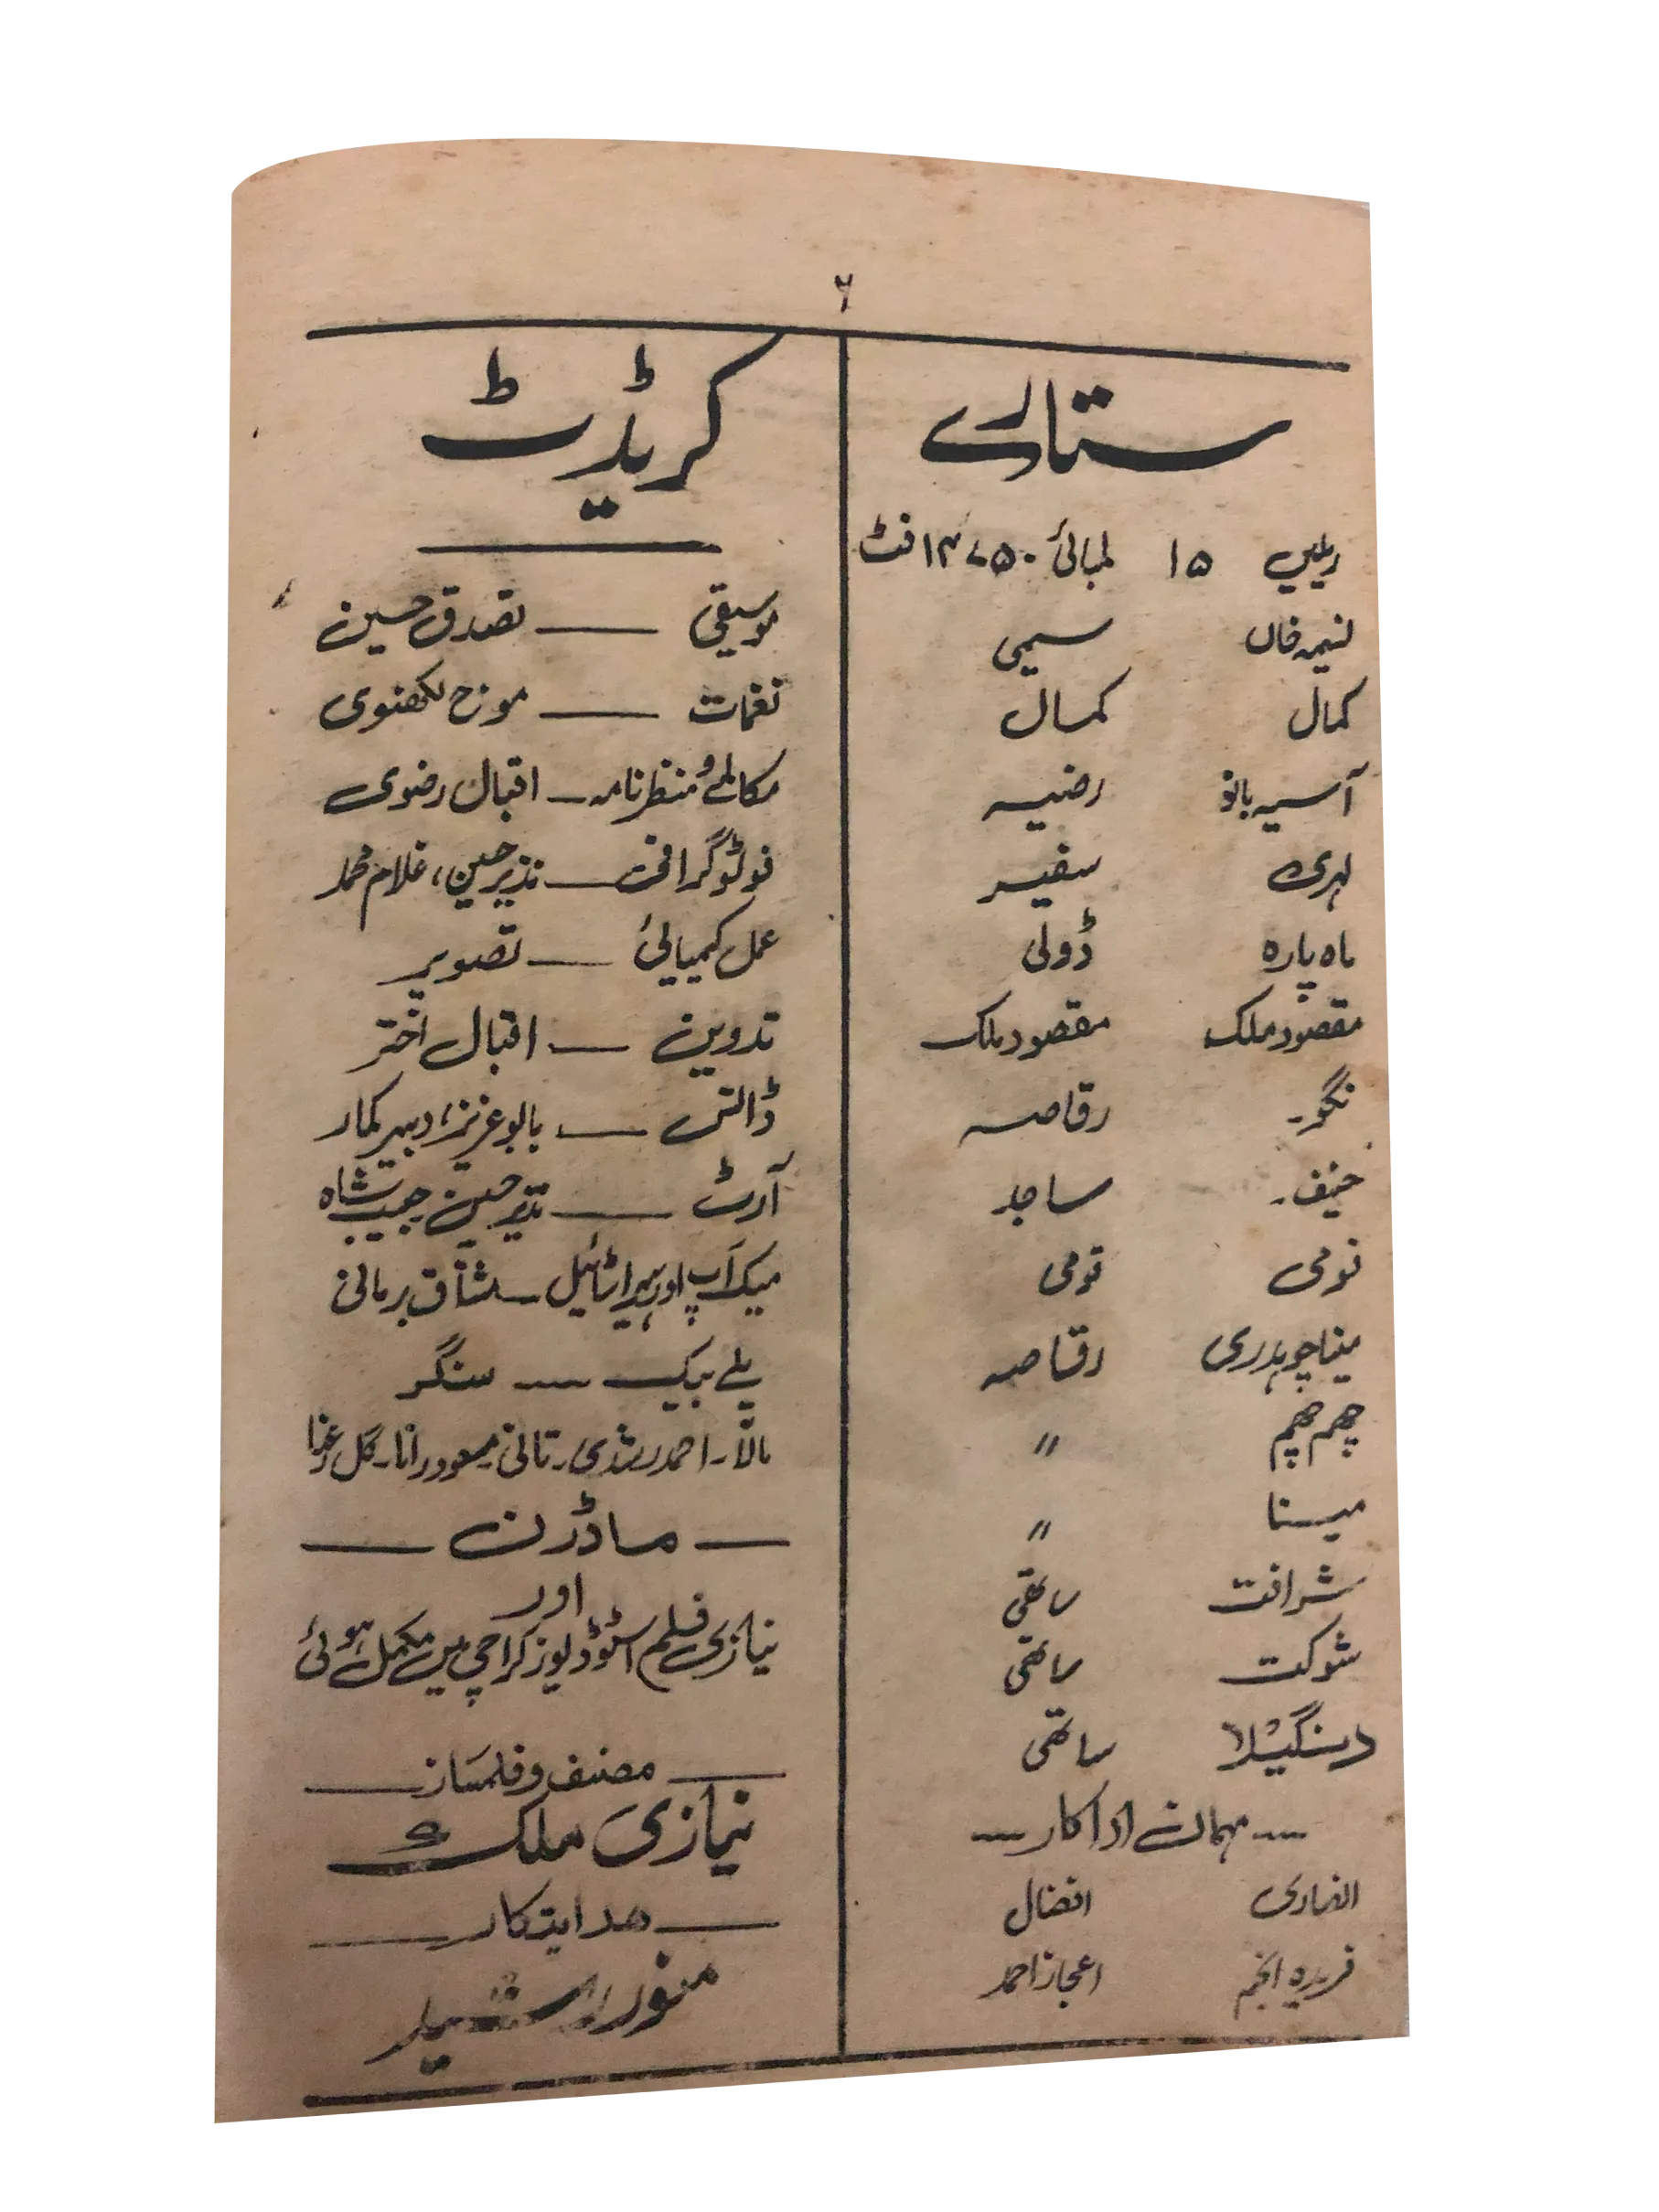 ۶
ستارے
ریلیں ۱۵ لمبائی ۱۴۷۵۰ فٹ
نسیمہ خاں سیمی
کمال کمال
آسیہ بانو رضیہ
لہری سفیر
ماہ پارہ ڈولی
مقصود ملک مقصود ملک
نگو۔ رقاصہ
حنیف۔ ساجد
نومی نومی
مینا چوہدری رقاصہ
چھم چھم "
مینا "
شرافت ساتھی
شوکت ساتھی
رنگیلا ساتھی
--- مہمان اداکار ---
انصاری افضال
فریدہ انجم اعجاز احمد
کریڈٹ
موسیقی —— تصدق حسین
نغمات —— موج لکھنوی
مکالمے و منظرنامہ — اقبال رضوی
فوٹو گرافی —— نذیر حسین، غلام محمد
عمل کیمیائی —— تصویر
تدوین —— اقبال اختر
ڈانس —— بابو عزیز، دبیر کمار
آرٹ —— نذیر حسین حبیب شاہ
میک اَپ اور ہیر اسٹائیل — مشتاق برمانی
پلے بیک ---- سنگر
مالا۔ احمد رشدی۔ تانی۔ مسعود رانا۔ گل رعنا
—— ماڈرن ——
اور
نیازی فلم اسٹوڈیوز کراچی میں مکمل ہوئی
—— مصنف و فلمساز ——
نیازی ملک
—— ھدایتکار ——
منور رشید